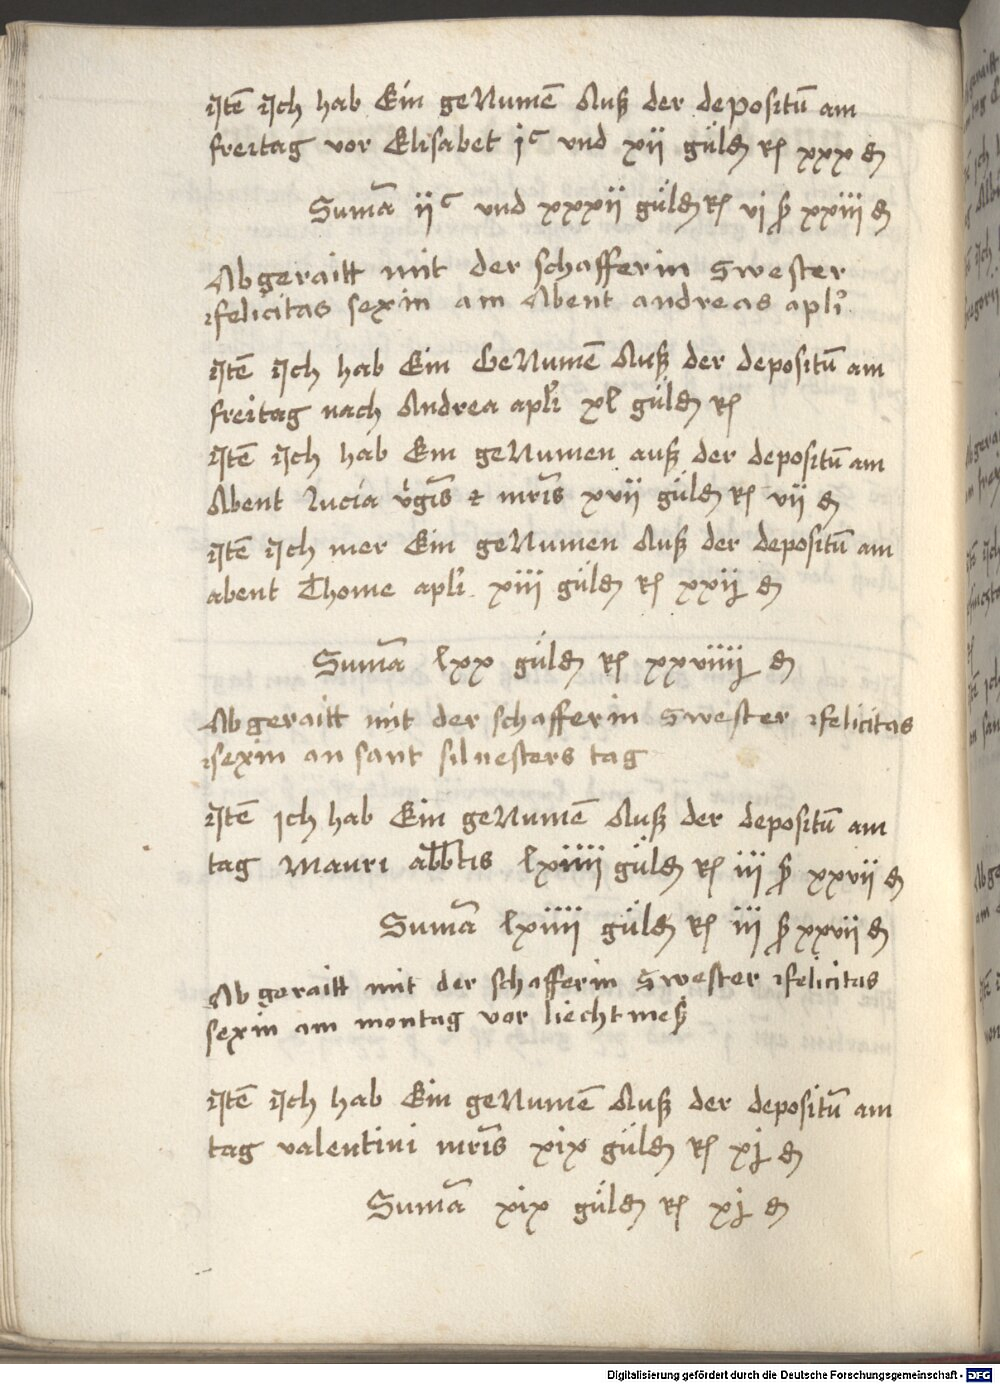 Jtē Jch hab Ein genumē Auß der depositū am
freitag vor Elisabet jᶜ vnd xii gůldn rh xxx dn
Sumā iiᶜ vnd xxxii gůldn rh vi ß xxiii dn
Abgeraitt mit der schafferin swester
felicitas sexin am Abent andreas apli
Jtē Jch hab Ein Genumē Auß der depositū am
freitag nach Andrea apli xl gůldn rh
Jtē Jch hab Ein genumen auß der depositū am
Abent lucia v̇gis ⁊ mris xvii gůldn rh vii dn
Jtē Jch mer Ein genumen Auß der depositū am
abent Thome apli xiii gůldn rh xxij dn
Sumā lxx gůldn rh xxviiij dn
Abgeraitt mit der schafferin swester felicitas
sexin an sant siluesters tag
Jtē ich hab Ein genumē Auß der depositū am
tag Mauri abbtis lxiiii gůldn rh iii ß xxvii dn
Sumā lxiiii gůldn rh iii ß xxvii dn
Abgeraitt mit der schafferin swester felicitas
sexin am montag vor liechtmeß
Jtē Jch hab Ein genumē Auß der depositū am
tag valentini mris xix gůldn rh xj dn
Sumā xix gůldn rh xj dn
Digitalisierung gefördert durch die Deutsche Forschungsgemeinschaft - DFG